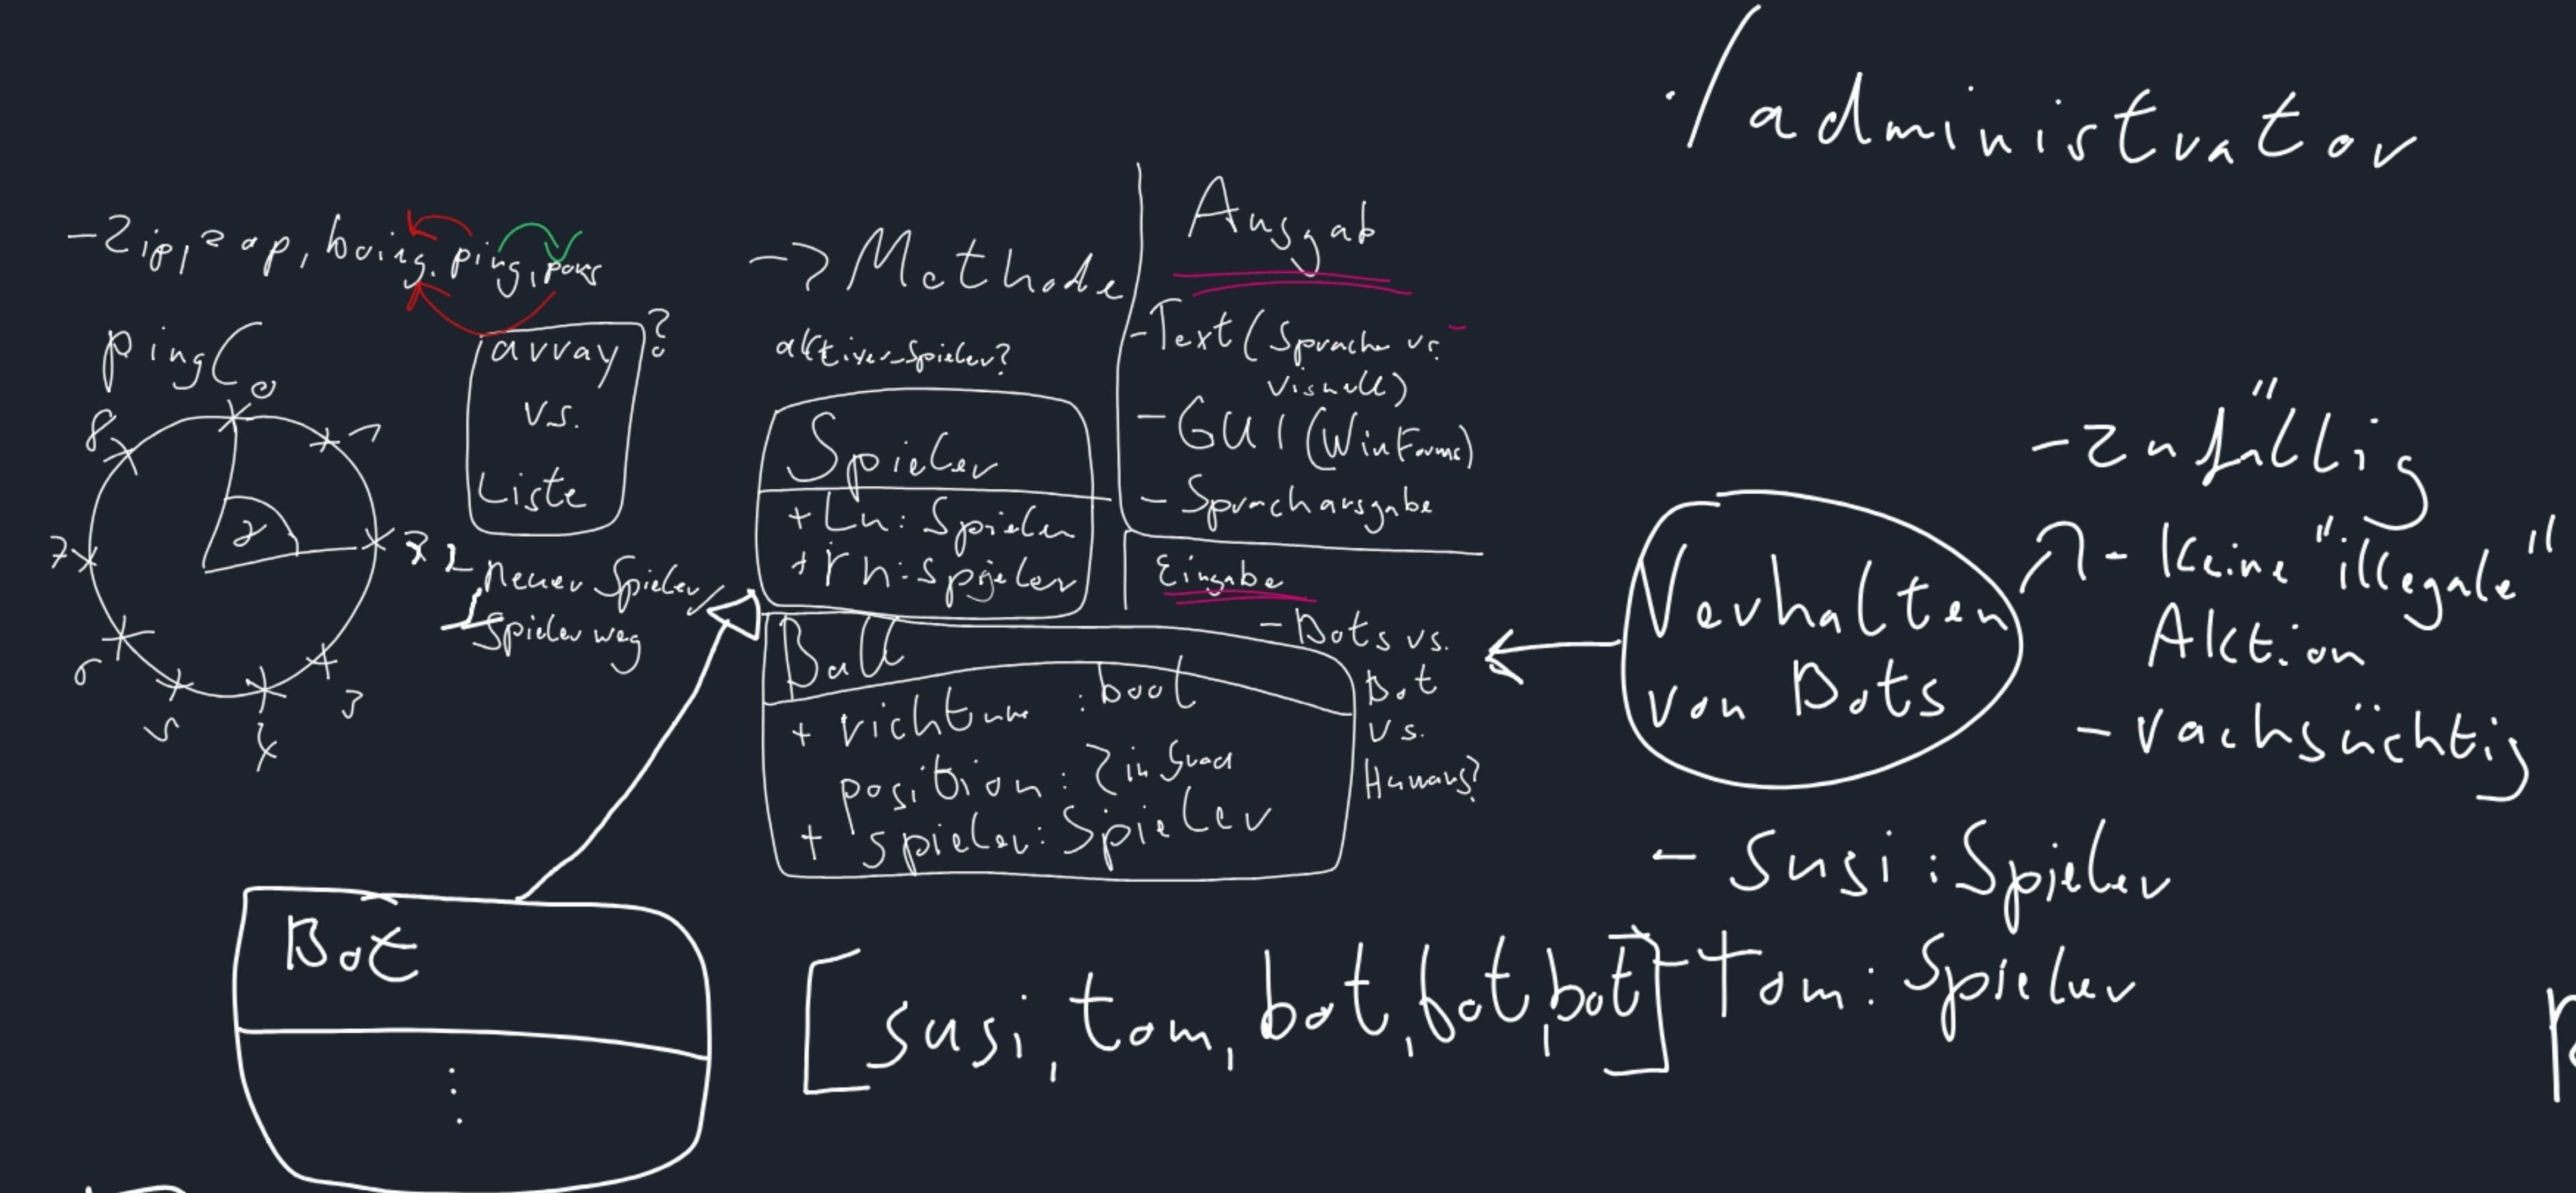 ./administrator
- Zip, zap, boing, ping, pong
-> Methode
ping(
array
vs.
Liste
?
0
1
2
3
4
5
6
7
8
α
neuer Spieler
Spieler weg
aktiver_Spieler?
Spieler
+ Ln: Spieler
+ rn: Spieler
Ball
+ richtung : bool
position: ? in Grad
+ spieler: Spieler
Ausgab
- Text (Sprache vs.
visuell)
- GUI (WinForms)
- Sprachausgabe
Eingabe
- Bots vs.
Bot
vs.
Humans?
Verhalten
von Bots
- "zufällig
- Keine "illegale"
Aktion
- rachsüchtig
- Susi : Spieler
- Tom : Spieler
[susi, tom, bot, bot, bot]
Bot